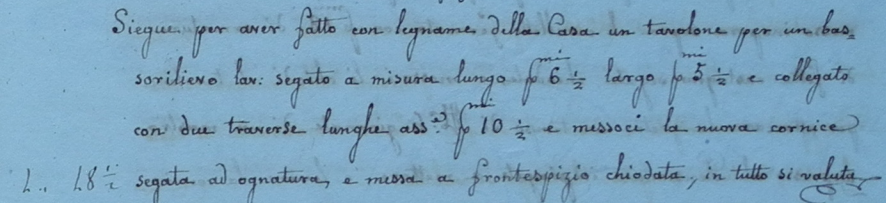 Siegue per aver fatto con legname della Casa un tavolone per un bas=
sorilievo lav: segato a misura lungo pmi 6 1/2 largo pmi 5 1/2 e collegato
con due traverse lunghe asse pmi 10 1/2 e messoci la nuova cornice
L.. 18 1/2 segata ad ognatura, e messa a frontespizio chiodata, in tutto si valuta